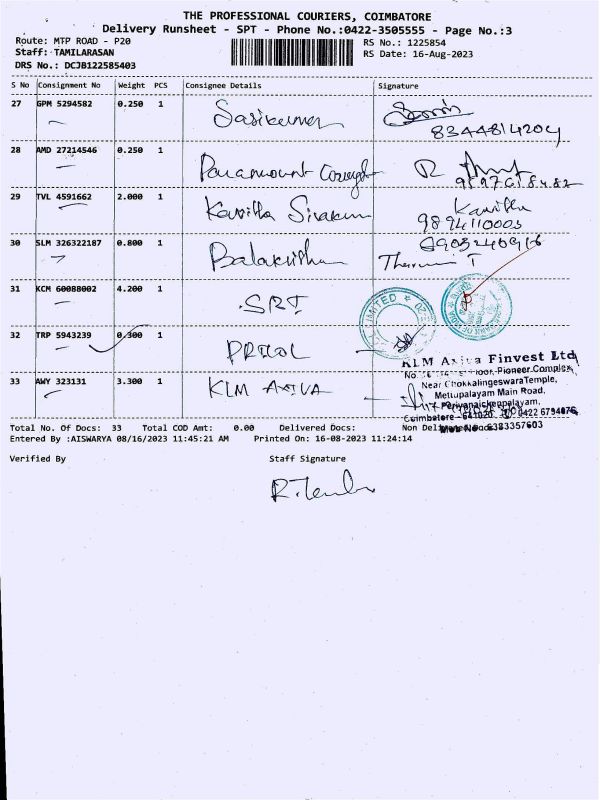 THE PROFESSIONAL COURIERS, COIMBATORE
Delivery Runsheet - SPT - Phone No.:0422-3505555 - Page No.:3
Route: MTP ROAD - P20
Staff: TAMILARASAN
DRS No.: DCJB122585403
RS No.: 1225854
RS Date: 16-Aug-2023
S No Consignment No Weight PCS Consignee Details Signature
27 GPM 5294582 0.250 1 Sasikumar
8344814204
28 AMD 27214546 0.250 1 Paramount R
29 TVL 4591662 2.000 1 Kavitha Kavitha
9894110003
30 SLM 326322187 0.800 1 Balakrishna
31 KCM 60088002 4.200 1 SRT
LIMITED
32 TRP 5943239 0.300 1 PRICOL
33 AWY 323131 3.300 1 KLM AXIVA
KLM Axiva Finvest Ltd
Floor, Pioneer Complex
Near ChokkalingeswaraTemple,
Mettupalayam Main Road,
Periyanaickenpalayam,
Coimbatore - 641020 0422
Mob No: 6383357603
Total No. Of Docs: 33 Total COD Amt: 0.00 Delivered Docs: Non Delivered Docs:
Entered By :AISWARYA 08/16/2023 11:45:21 AM Printed On: 16-08-2023 11:24:14
Verified By Staff Signature